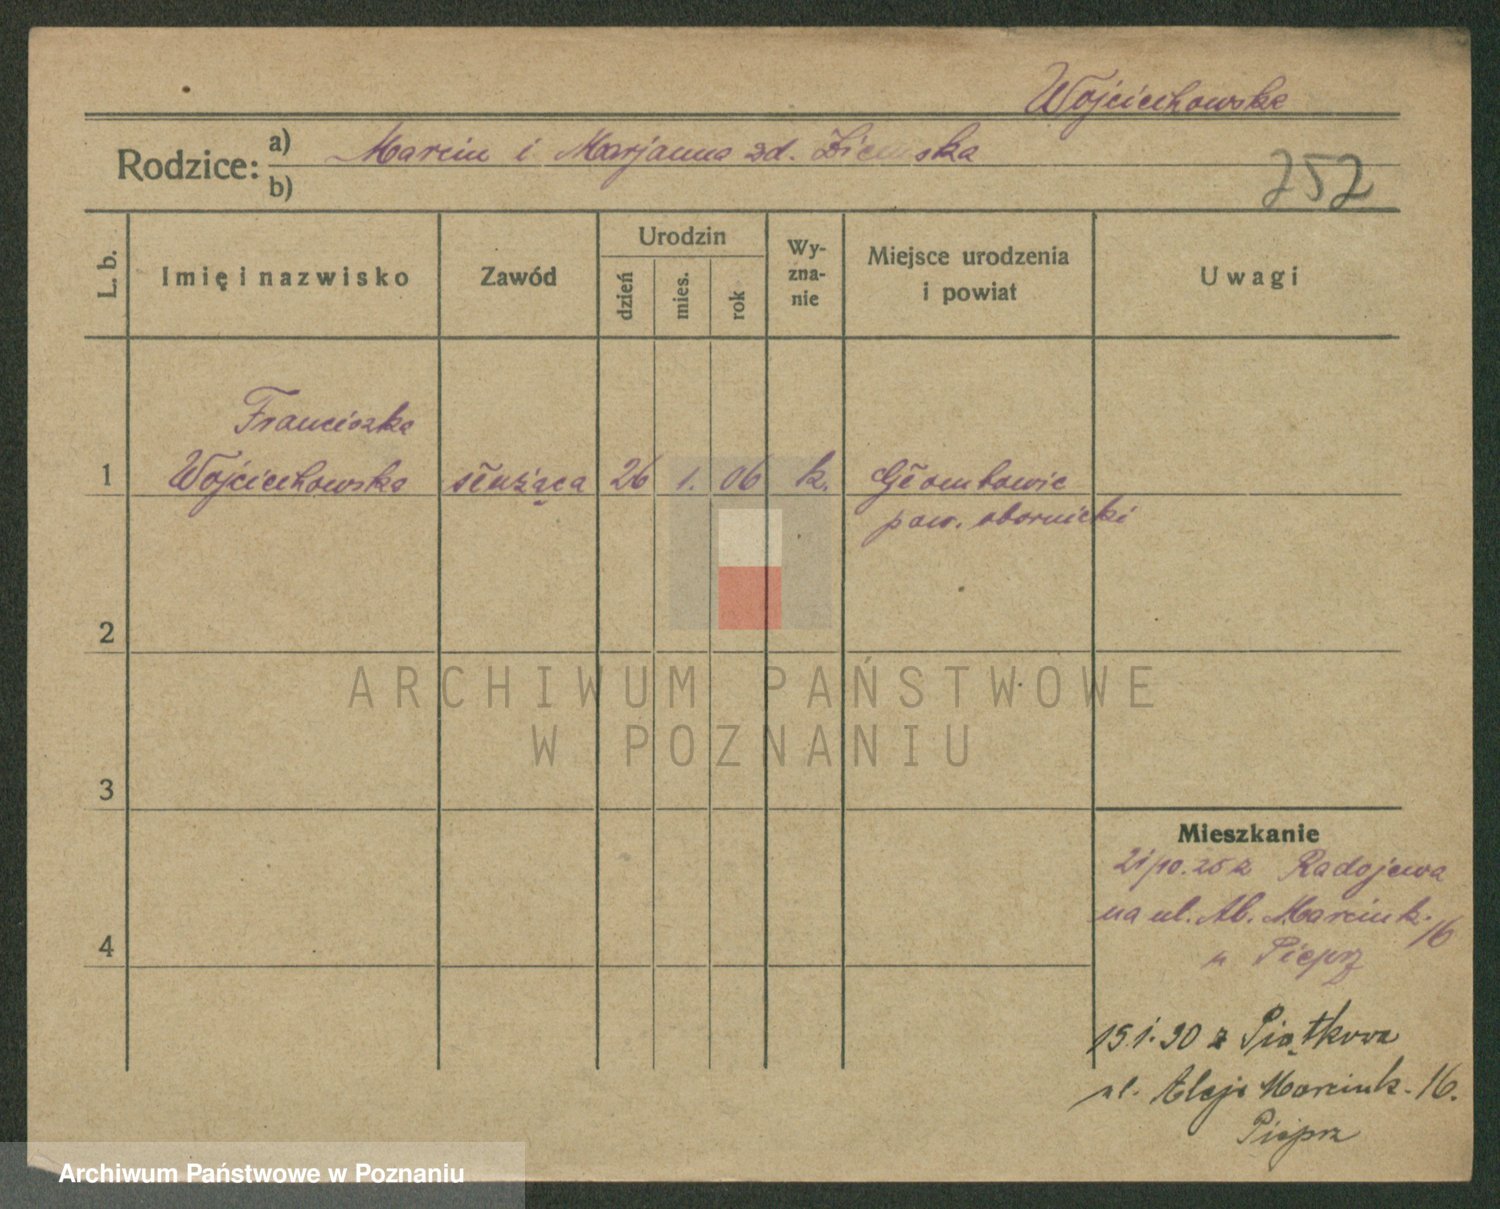 Wojciechowska
Rodzice: a) Marcin i Marjanna zd.
b)
252
L. b.
Imię i nazwisko
Zawód
Urodzin
dzień
mies.
rok
Wy-
zna-
nie
Miejsce urodzenia
i powiat
Uwagi
Franciszka
1 Wojciechowska służąca 26 1. 06 k. Głombowic
pow. obornicki
2
3
4
ARCHIWUM PAŃSTWOWE
W POZNANIU
Mieszkanie
z Radojewa
na ul. Al. Marcink. 16
u Pieprz
15.1.30 z Piątkowa
ul. Aleje Marcink. 16.
Pieprz
Archiwum Państwowe w Poznaniu